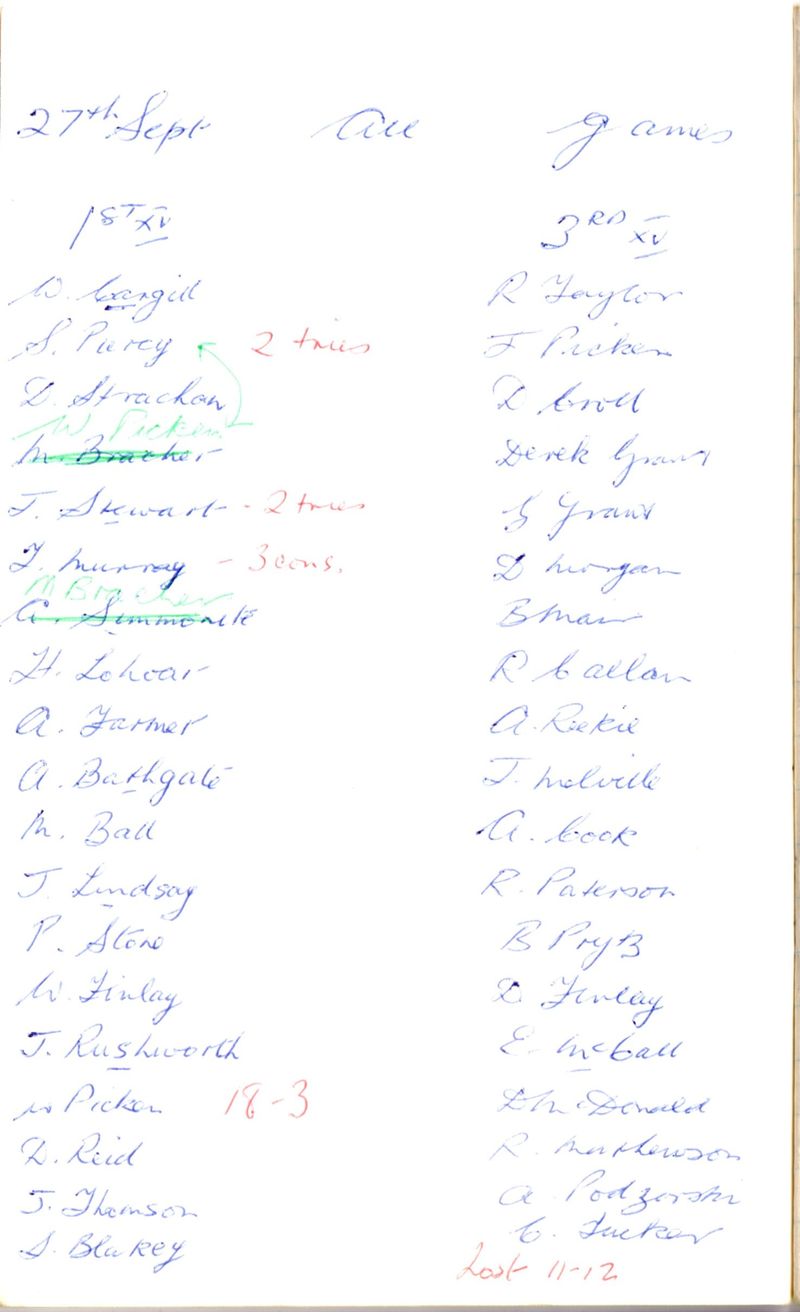 27th Sept All Games
1ST XV
W. Cargill
S. Piercy 2 tries
D. Strachan
W Picken
M. Bracher
J. Stewart - 2 tries
J. Murray - 3 cons.
M Bracher
A. Simmonite
H. Lohoar
A. Farmer
A. Bathgate
M. Ball
J. Lindsay
P. Stone
W. Finlay
J. Rushworth
W Picken 18-3
D. Reid
J. Thomson
S. Blakey
3RD XV
R Taylor
J Picken
D Croll
Derek Grant
G Grant
D Morgan
B Maw
R Callan
A. Reekie
J. Melville
A. Cook
R. Paterson
B Prytz
D. Finlay
E. McCall
D McDonald
R. Mathewson
A Podzorski
C. Tucker
Lost 11-12